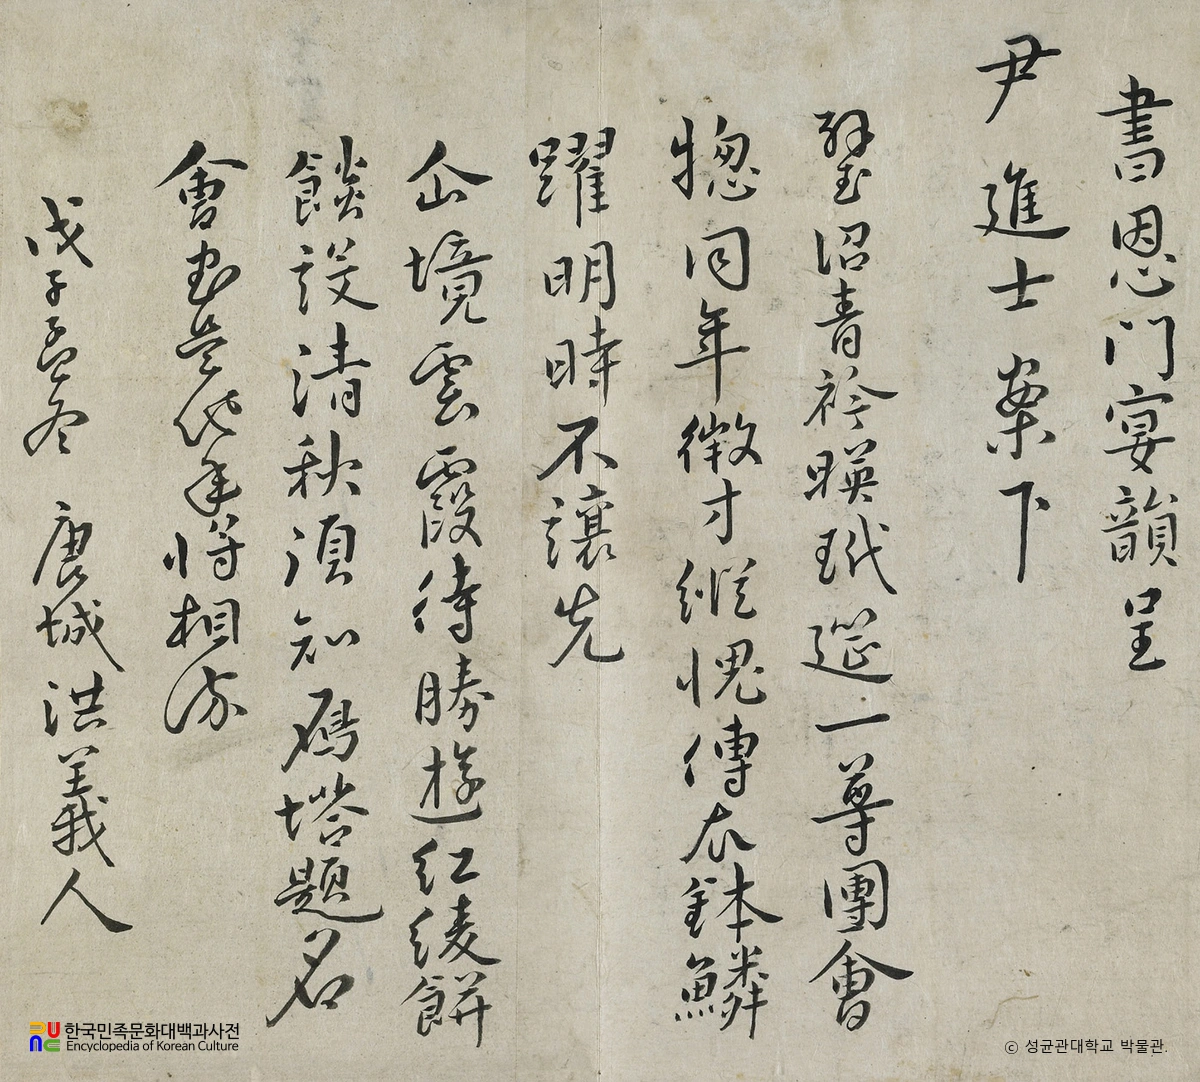 書恩門宴韻呈
尹進士案下
璧沼青衿暎玳筵一尊團會
揔同年徵才縱愧傳衣鉢鱗
躍明時不讓先
仚境雲霞待勝遊紅綾餅
餤設清秋須知鴈塔題名
會盡是他年將相流
戊子孟冬 唐城洪義人
한국민족문화대백과사전
Encyclopedia of Korean Culture
ⓒ 성균관대학교 박물관.